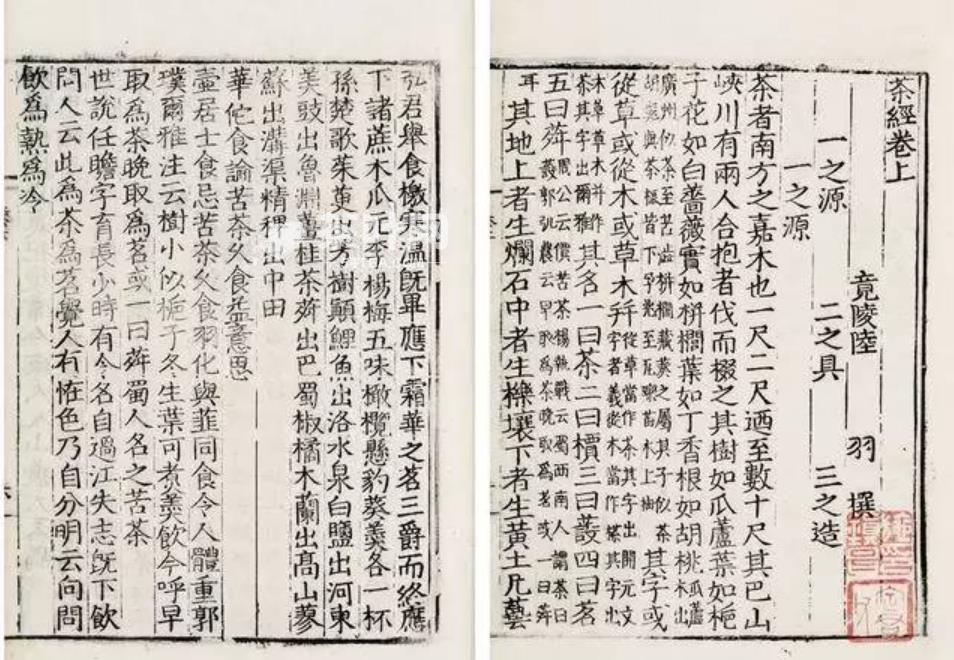 茶經卷上
竟陵陸 羽 撰
一之源 二之具 三之造
一之源
茶者南方之嘉木也一尺二尺廼至數十尺其巴山
峽川有兩人合抱者伐而掇之其樹如瓜蘆葉如梔
子花如白薔薇實如栟櫚葉如丁香根如胡桃瓜蘆木出
廣州似茶至苦澁栟櫚蒲葵之屬其子似茶胡桃與茶根皆下孕兆至瓦礫苗木上抽其字或
從草或從木或草木幷從草當作茶其字出開元文字者義從木當作㮈其字出
本草草木并作荼其字出爾雅其名一曰茶二曰檟三曰蔎四曰茗
五曰荈周公云檟苦茶楊執戟云蜀西南人謂茶曰蔎郭弘農云早取爲茶晚取爲茗或一曰荈
耳其地上者生爛石中者生櫟壤下者生黃土凡藝
弘君舉食檄寒溫旣畢應下霜華之茗三爵而終應
下諸蔗木瓜元李楊梅五味橄欖懸豹葵羹各一杯
孫楚歌茱萸出芳樹顚鯉魚出洛水泉白鹽出河東
美豉出魯淵薑桂茶荈出巴蜀椒橘木蘭出高山蓼
蘇出溝渠精稗出中田
華佗食論苦茶久食益意思
壺居士食忌苦茶久食羽化與韮同食令人體重郭
璞爾雅注云樹小似梔子冬生葉可煮羹飲今呼早
取爲茶晚取爲茗或一曰荈蜀人名之苦茶
世說任瞻字育長少時有令名自過江失志旣下飲
問人云此爲茶爲茗覺人有怪色乃自分明云向問
飲爲熱爲冷